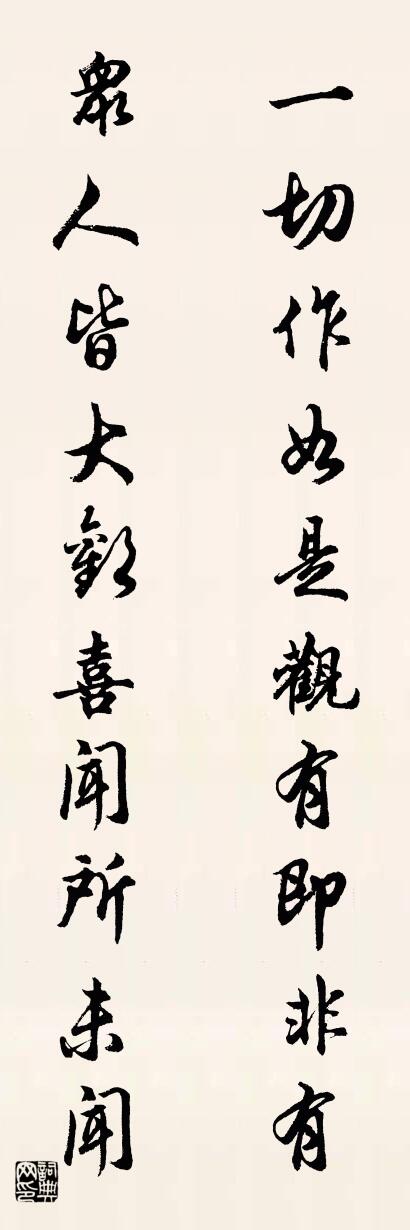 一切作如是觀有即非有
眾人皆大歡喜聞所未聞
詞典網印